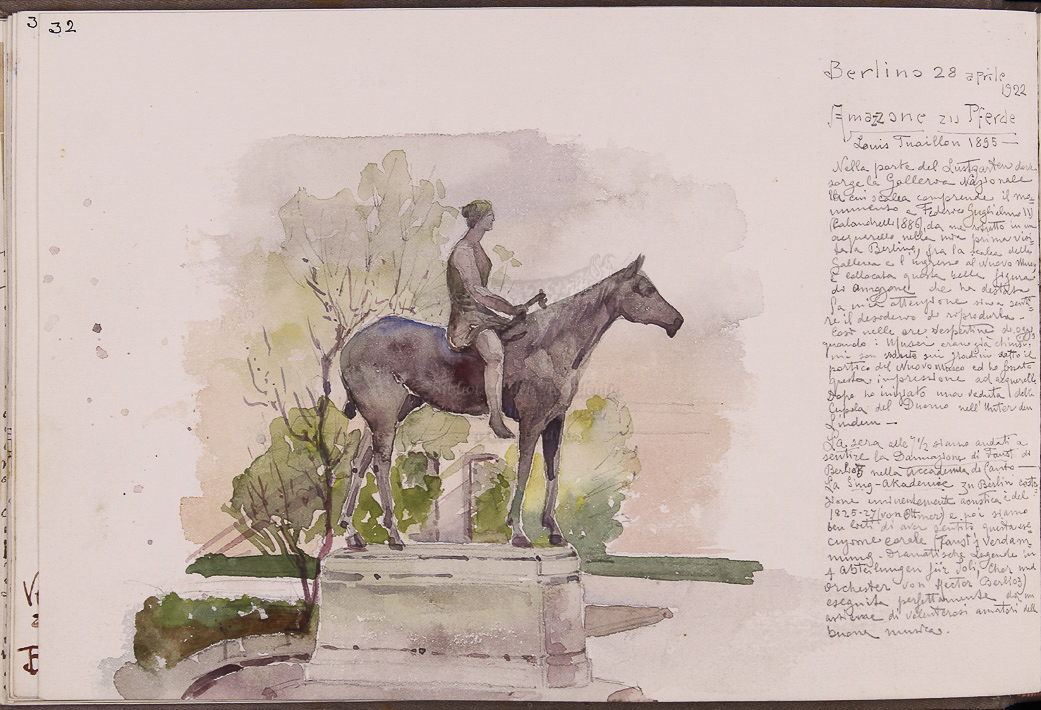 3
32
Berlino 28 aprile
1922
Amazone zu Pferde
Louis Tuaillon 1895 —
Nella parte del Lustgarten dove
sorge la Galleria Nazionale
la cui scalea comprende il mo-
numento a Federico Guglielmo IV
(Calandrelli 1886), da me in un
acquerello nella mia prima visi-
ta a Berlino, fra la scalea della
Galleria e l'ingresso al Nuovo Museo
è collocata questa bella figura
di Amazone che ha destato
la mia attenzione sempre
re il desiderio di riprodurla —
Così nelle ore vespertine di oggi
quando i Musei erano già chiusi,
mi son seduto sui gradini sotto il
portico del Nuovo Museo ed ho
questa impressione ad acquerello
Dopo ho iniziato una veduta della
Cupola del Duomo nell'Unter den
Linden —
La sera alle 7½ siamo andati a
sentire la Dannazione di Faust di
Berlioz nella Accademia di Canto —
La Sing-Akademie zu Berlin
zione eminentemente acustica è del
1825-27 (von Ottmer) e poi siamo
ben lieti di aver sentito questa
cuzione corale (Faust's Verdam
mung - Dramatische Legende in
4 Abteilungen für Soli, Chor und
Orchester von Hector Berlioz)
eseguita perfettamente da un
di volenterosi amatori della
buona musica.
V
B